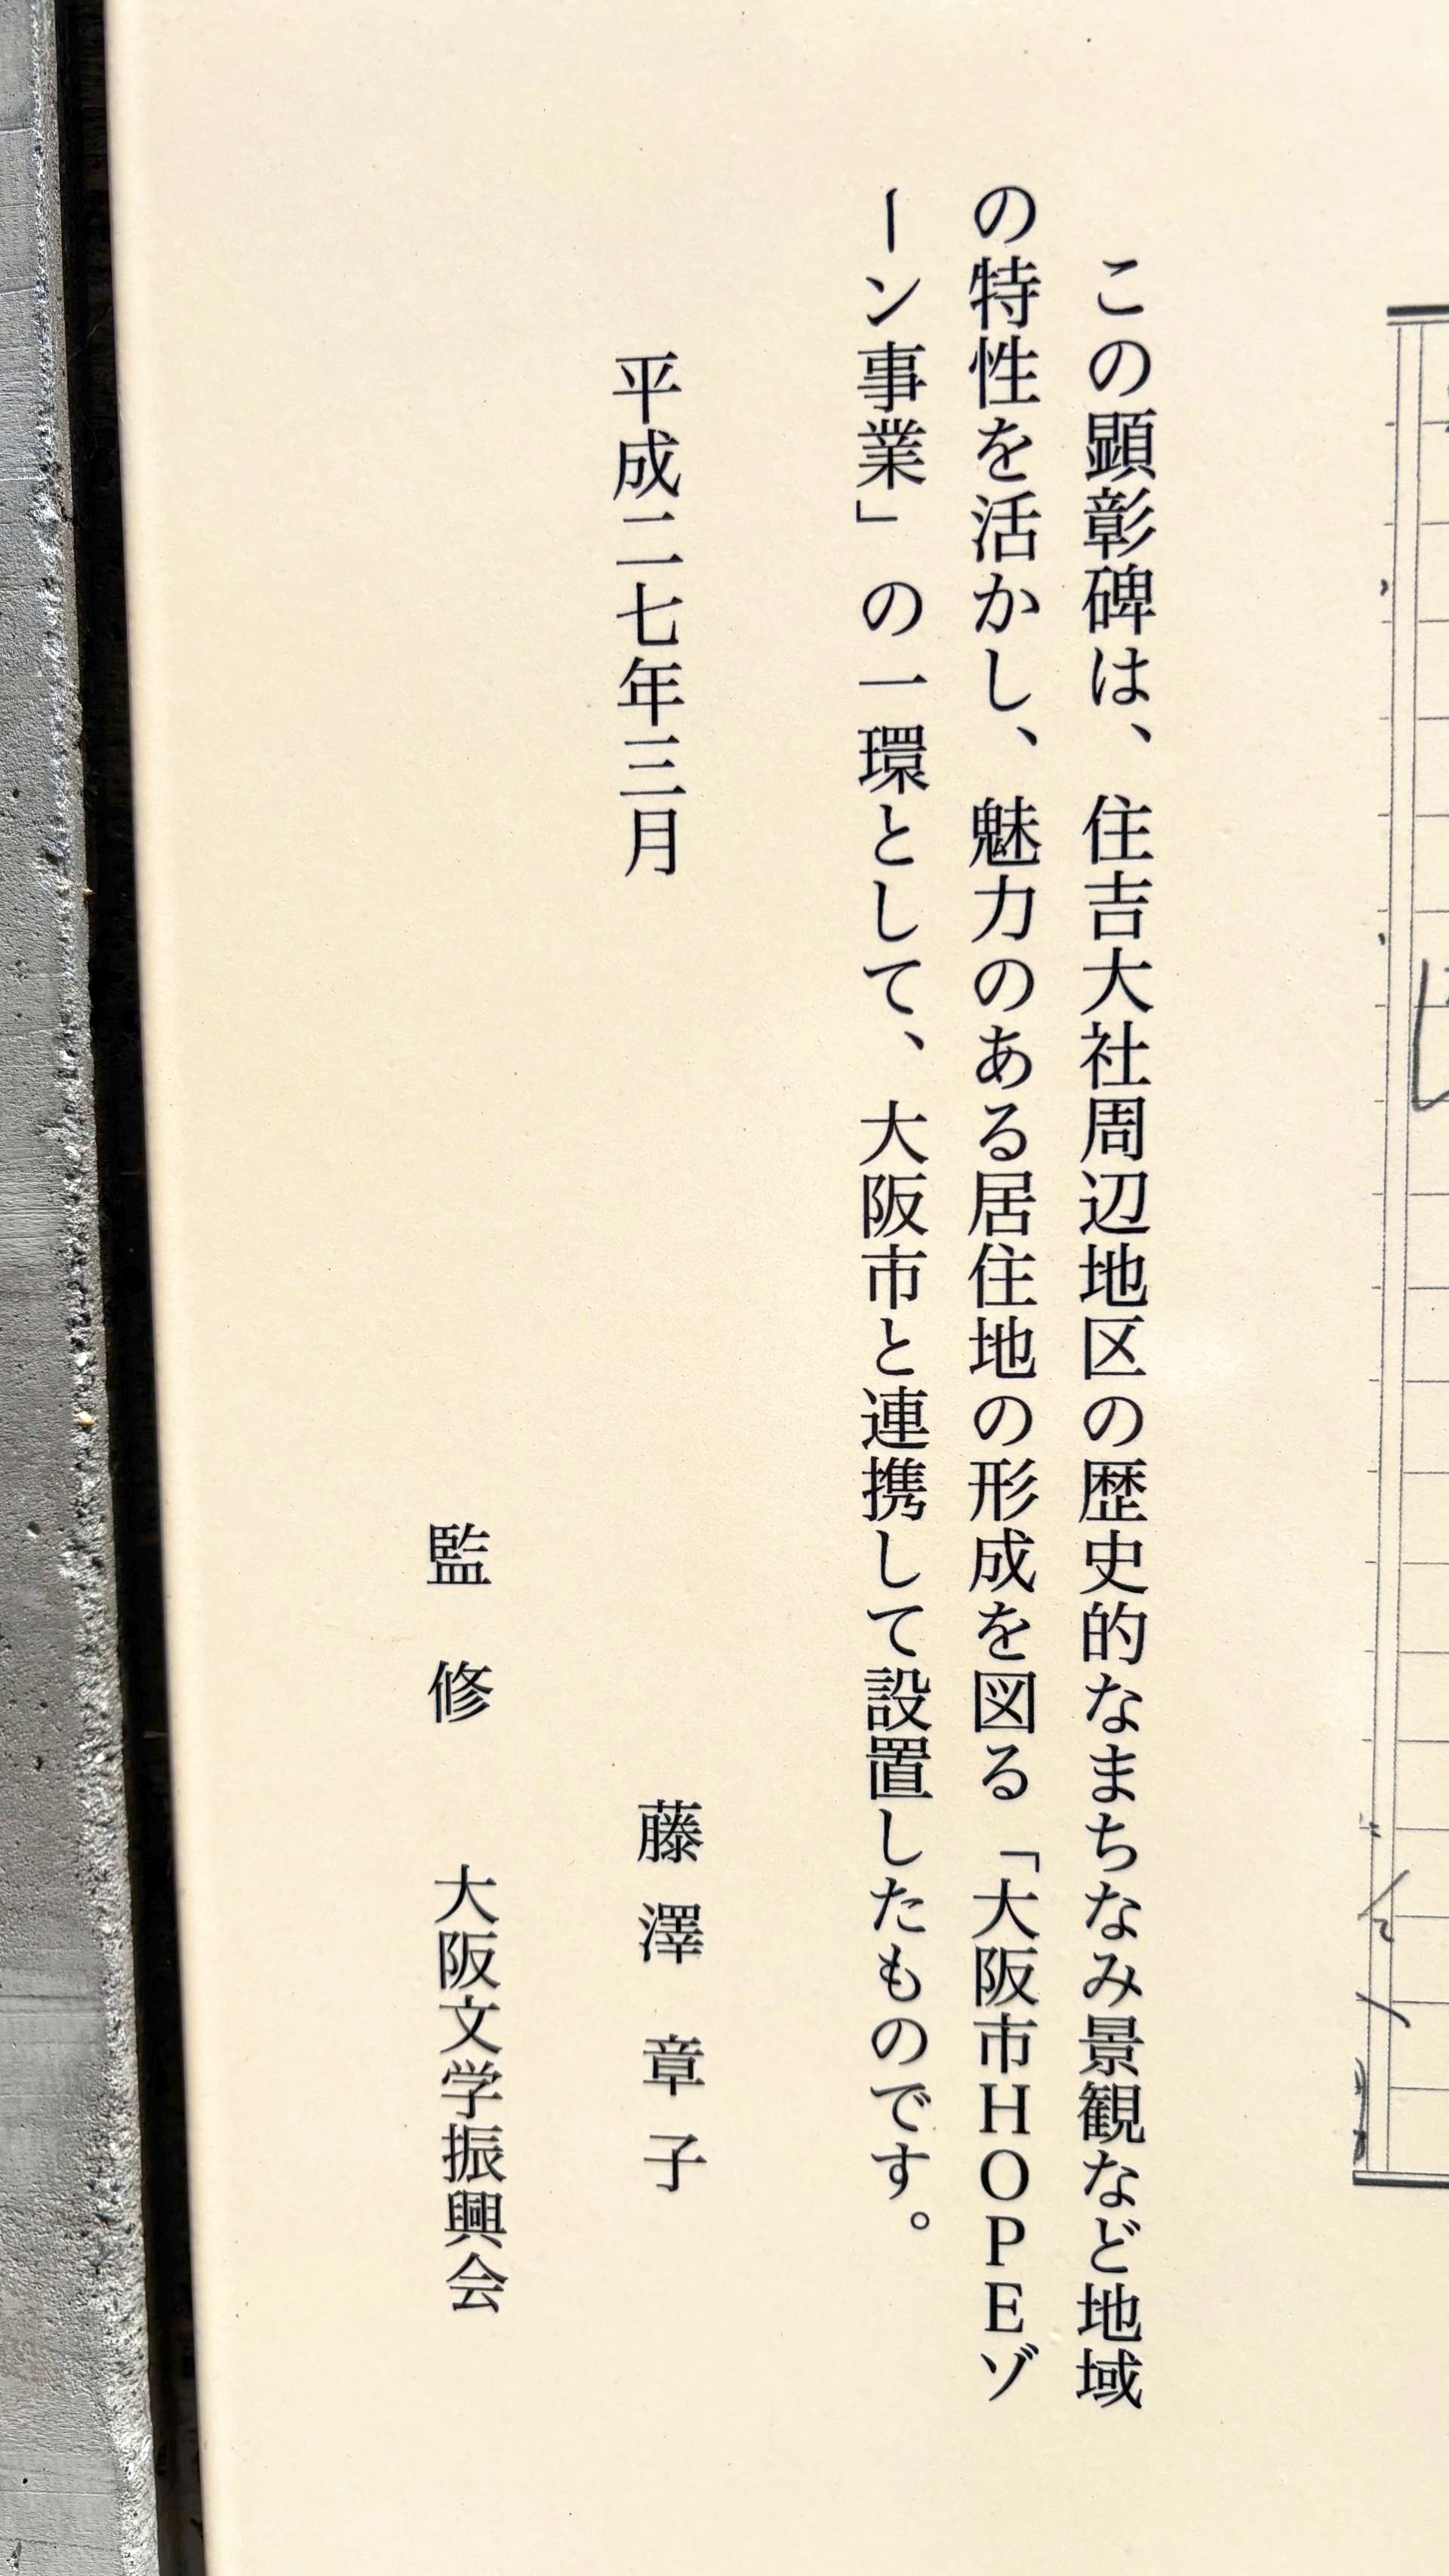 この顕彰碑は、住吉大社周辺地区の歴史的なまちなみ景観など地域
の特性を活かし、魅力のある居住地の形成を図る「大阪市HOPEゾ
ーン事業」の一環として、大阪市と連携して設置したものです。
平成二七年三月
藤澤章子
監修　大阪文学振興会